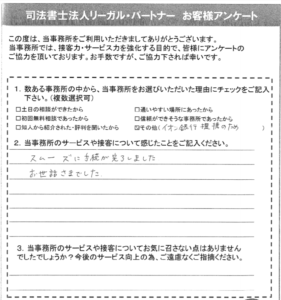 司法書士法人リーガル・パートナー お客様アンケート
この度は、当事務所をご利用いただきましてありがとうございます。
当事務所では、接客力・サービス力を強化する目的で、皆様にアンケートの
ご協力を頂いております。お手数ですが、ご協力下されば幸いです。
1. 数ある事務所の中から、当事務所をお選びいただいた理由にチェックをご記入
下さい。(複数選択可)
□土日の相談ができたから □通いやすい場所にあったから
□初回無料相談であったから □信頼ができそうな事務所であったから
□知人から紹介された・評判を聞いたから ☑その他(イオン銀行提携のため)
2. 当事務所のサービスや接客について感じたことをご記入ください。
スムーズに手続が完了しました
お世話さまでした
3. 当事務所のサービスや接客についてお気に召さない点はありません
でしたでしょうか?今後のサービス向上の為、ご遠慮なくご指摘ください。